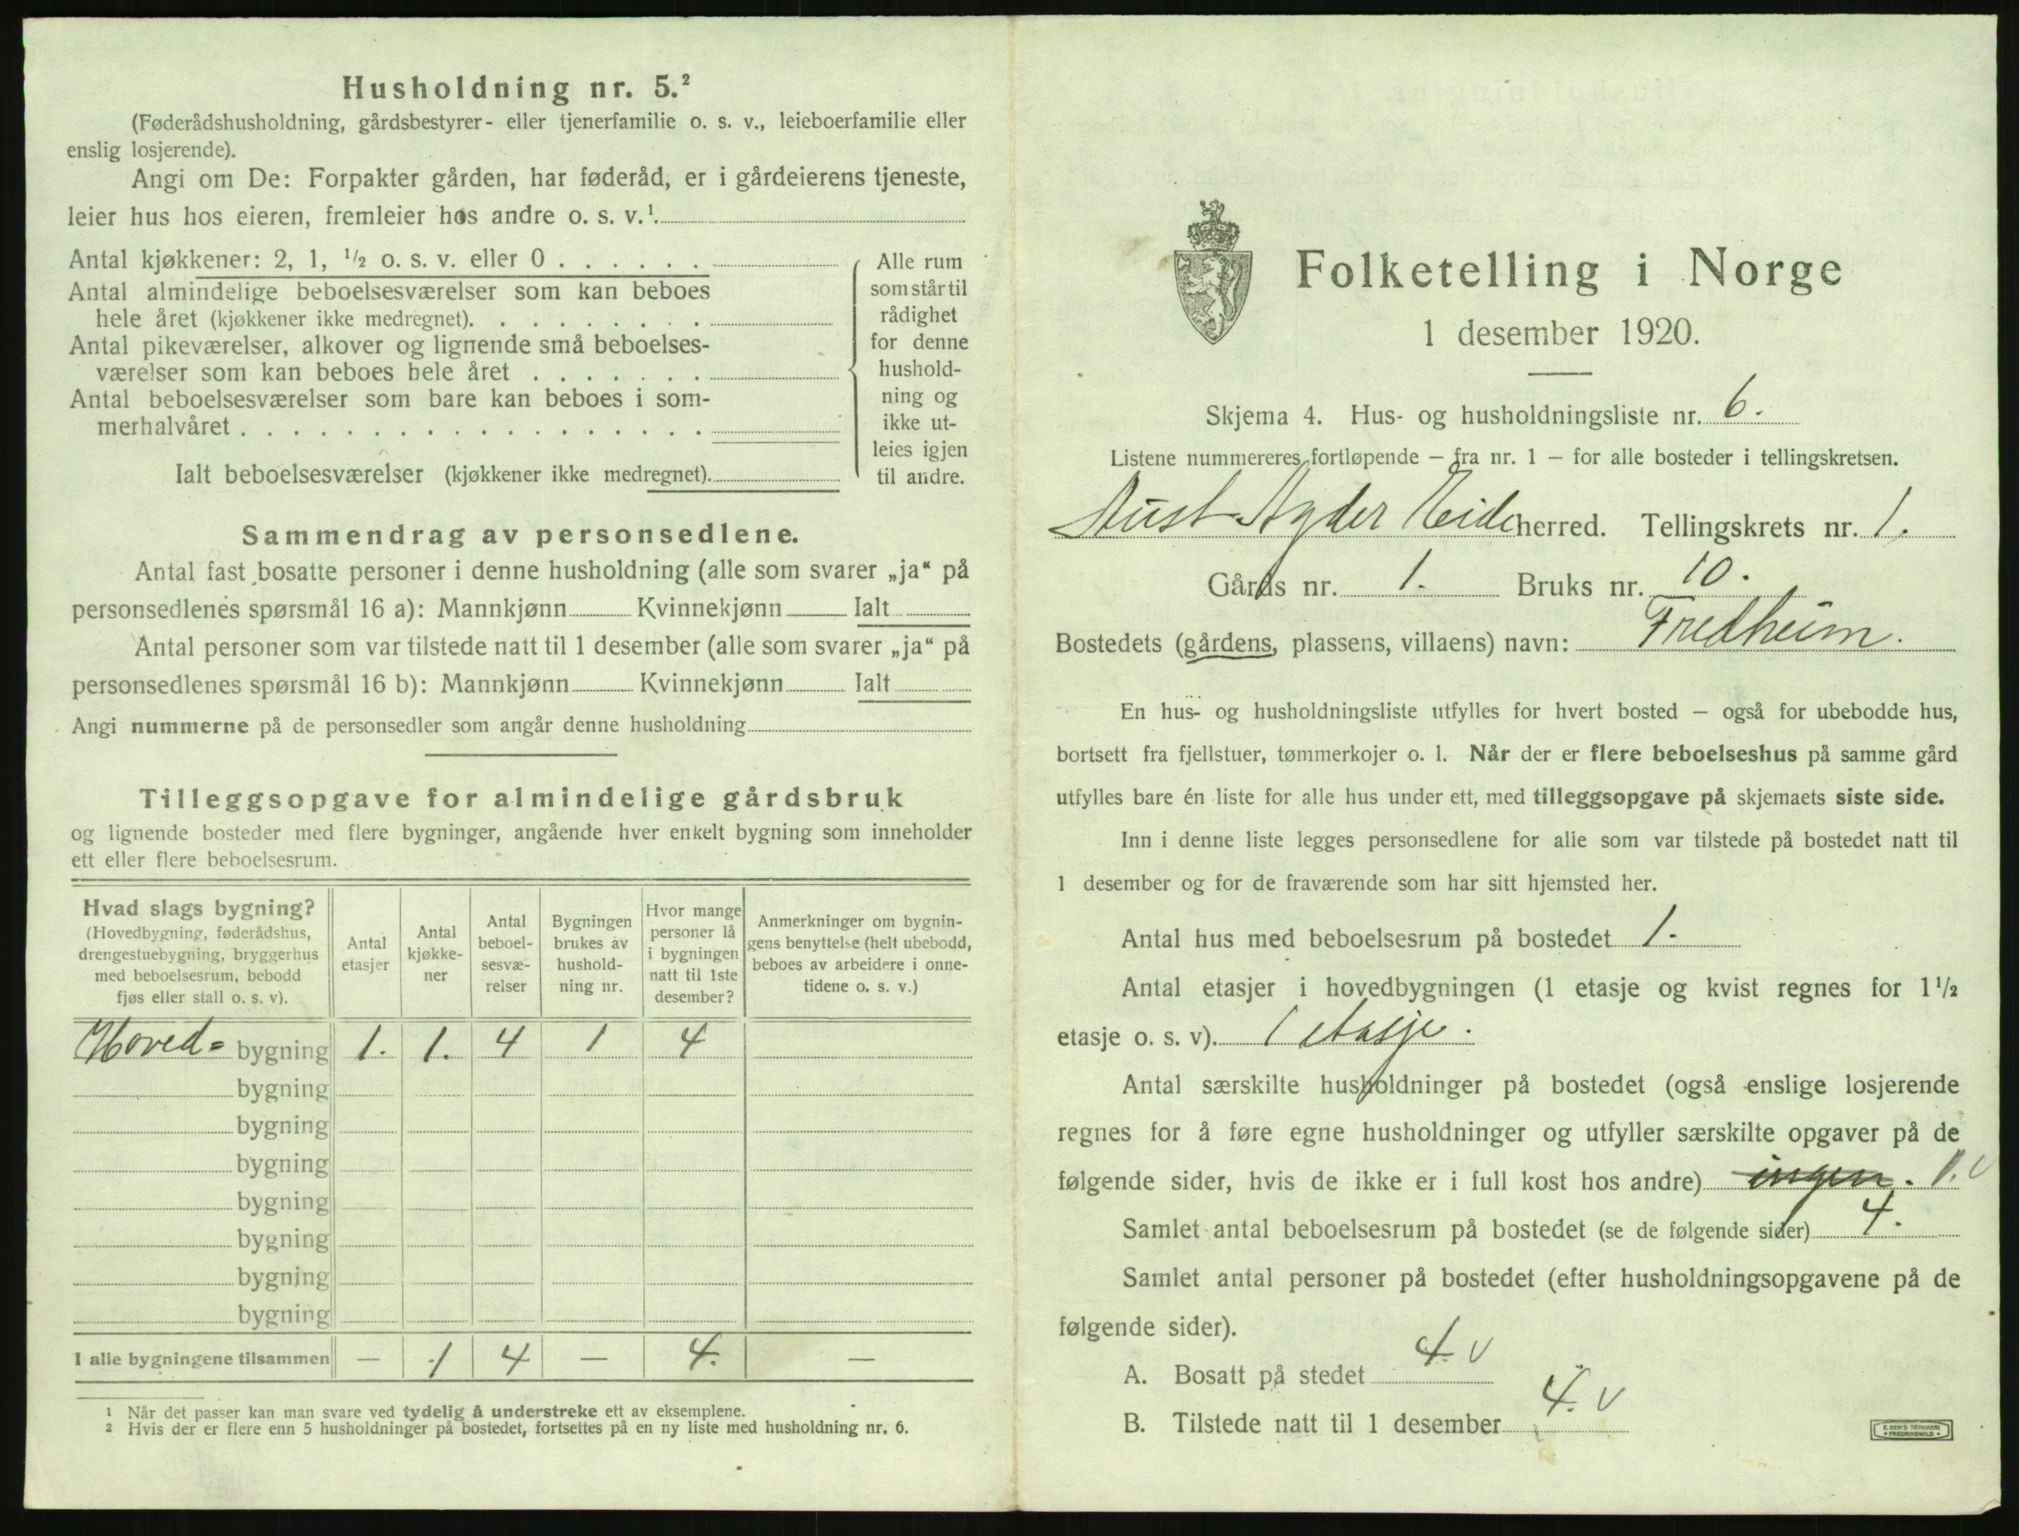 Husholdning nr. 5.²
(Føderådshusholdning, gårdsbestyrer- eller tjenerfamilie o. s. v., leieboerfamilie eller
enslig losjerende).
Angi om De: Forpakter gården, har føderåd, er i gårdeierens tjeneste,
leier hus hos eieren, fremleier hos andre o. s. v.¹.
Antal kjøkkener: 2, 1, ½ o. s. v. eller 0 . . . . . .
Antal almindelige beboelsesværelser som kan beboes
hele året (kjøkkener ikke medregnet). . . . . . . . .
Antal pikeværelser, alkover og lignende små beboelses-
værelser som kan beboes hele året . . . . . . .
Antal beboelsesværelser som bare kan beboes i som-
merhalvåret . . . . . . . . . . . . . . . . . .
Ialt beboelsesværelser (kjøkkener ikke medregnet).
Alle rum
som står til
rådighet
for denne
hushold-
ning og
ikke ut-
leies igjen
til andre.
Sammendrag av personsedlene.
Antal fast bosatte personer i denne husholdning (alle som svarer „ja“ på
personsedlenes spørsmål 16 a): Mannkjønn Kvinnekjønn Ialt
Antal personer som var tilstede natt til 1 desember (alle som svarer „ja“ på
personsedlenes spørsmål 16 b): Mannkjønn Kvinnekjønn Ialt
Angi nummerne på de personsedler som angår denne husholdning
Tilleggsopgave for almindelige gårdsbruk
og lignende bosteder med flere bygninger, angående hver enkelt bygning som inneholder
ett eller flere beboelsesrum.
Hvad slags bygning?
(Hovedbygning, føderådshus,
drengestuebygning, bryggerhus
med beboelsesrum, bebodd
fjøs eller stall o. s. v).
Antal
etasjer
Antal
kjøkke-
ner
Antal
beboel-
sesvæ-
relser
Bygningen
brukes av
hushold-
ning nr.
Hvor mange
personer lå
i bygningen
natt til 1ste
desember?
Anmerkninger om bygnin-
gens benyttelse (helt ubebodd,
beboes av arbeidere i onne-
tidene o. s. v.)
Hoved= bygning 1. 1. 4 1 4
bygning
bygning
bygning
bygning
bygning
bygning
bygning
I alle bygningene tilsammen — 1 4 — 4. —
¹ Når det passer kan man svare ved tydelig å understreke ett av eksemplene.
² Hvis der er flere enn 5 husholdninger på bostedet, fortsettes på en ny liste med husholdning nr. 6.
Folketelling i Norge
1 desember 1920.
Skjema 4. Hus- og husholdningsliste nr. 6.
Listene nummereres fortløpende — fra nr. 1 — for alle bosteder i tellingskretsen.
Aust-Agder Eide herred. Tellingskrets nr. 1.
Gårds nr. 1. Bruks nr. 10.
Bostedets (gårdens, plassens, villaens) navn: Fredheim.
En hus- og husholdningsliste utfylles for hvert bosted — også for ubebodde hus,
bortsett fra fjellstuer, tømmerkojer o. l. Når der er flere beboelseshus på samme gård
utfylles bare én liste for alle hus under ett, med tilleggsopgave på skjemaets siste side.
Inn i denne liste legges personsedlene for alle som var tilstede på bostedet natt til
1 desember og for de fraværende som har sitt hjemsted her.
Antal hus med beboelsesrum på bostedet 1.
Antal etasjer i hovedbygningen (1 etasje og kvist regnes for 1½
etasje o. s. v). 1 etasje.
Antal særskilte husholdninger på bostedet (også enslige losjerende
regnes for å føre egne husholdninger og utfyller særskilte opgaver på de
følgende sider, hvis de ikke er i full kost hos andre) ingen. 1. v
Samlet antal beboelsesrum på bostedet (se de følgende sider) 4.
Samlet antal personer på bostedet (efter husholdningsopgavene på de
følgende sider).
A. Bosatt på stedet 4. v
B. Tilstede natt til 1 desember 4. v